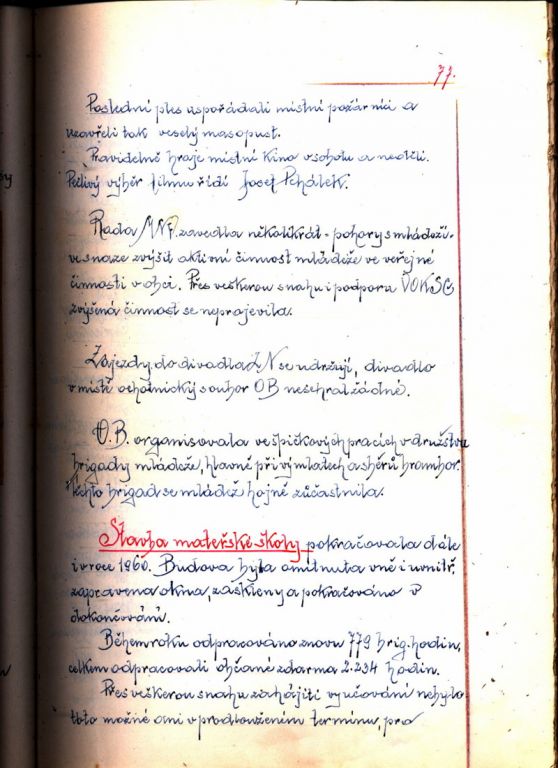 77.
Poslední ples uspořádali místní požárníci a
uzavřeli tak veselý masopust.
Pravidelně hraje místní Kino v sobotu a neděli.
Pečlivý výběr filmu řídí Josef Pehálek.
Rada MNV. zavedla několikrát - pohovy s mládeží -
ve snaze zvýšit aktivní činnost mládeže ve veřejné
činnosti v obci. Přes veškerou snahu i podporu VOKSČ
zvýšená činnost se neprojevila.
Zájezdy do divadla ZN se udržují, divadlo
v místě ochotnický soubor OB nesehrál žádné.
O.B. organisovala ve špičkových pracích v družstvu
brigady mládeže, hlavně při výmlatech a sběrů brambor.
Těchto brigad se mládež hojně zúčastnila.
Stavba mateřské školy pokračovala dále
i v roce 1960. Budova byla omítnuta vně i uvnitř,
zapravena okna, zaskleny a pokračováno v
dokončování.
Během roku odpracováno znovu 779 brig. hodin,
celkem odpracovali občané zdarma 2.234 hodin.
Přes veškerou snahu zahájiti vyučování nebylo
toto možné ani v prodlouženém termínu, pro